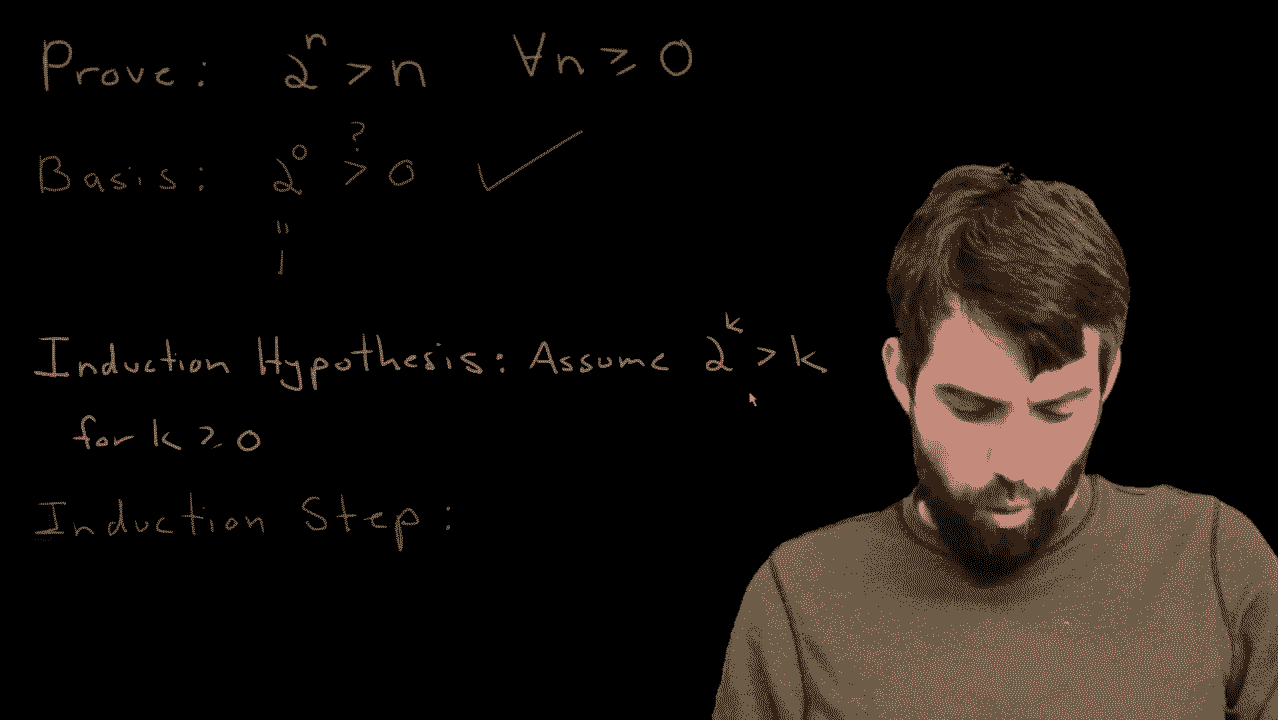 Prove: 2^n > n ∀n ≥ 0
Basis: 2^0 >^? 0 ✓
"
1
Induction Hypothesis: Assume 2^k > k
for k ≥ 0
Induction Step: